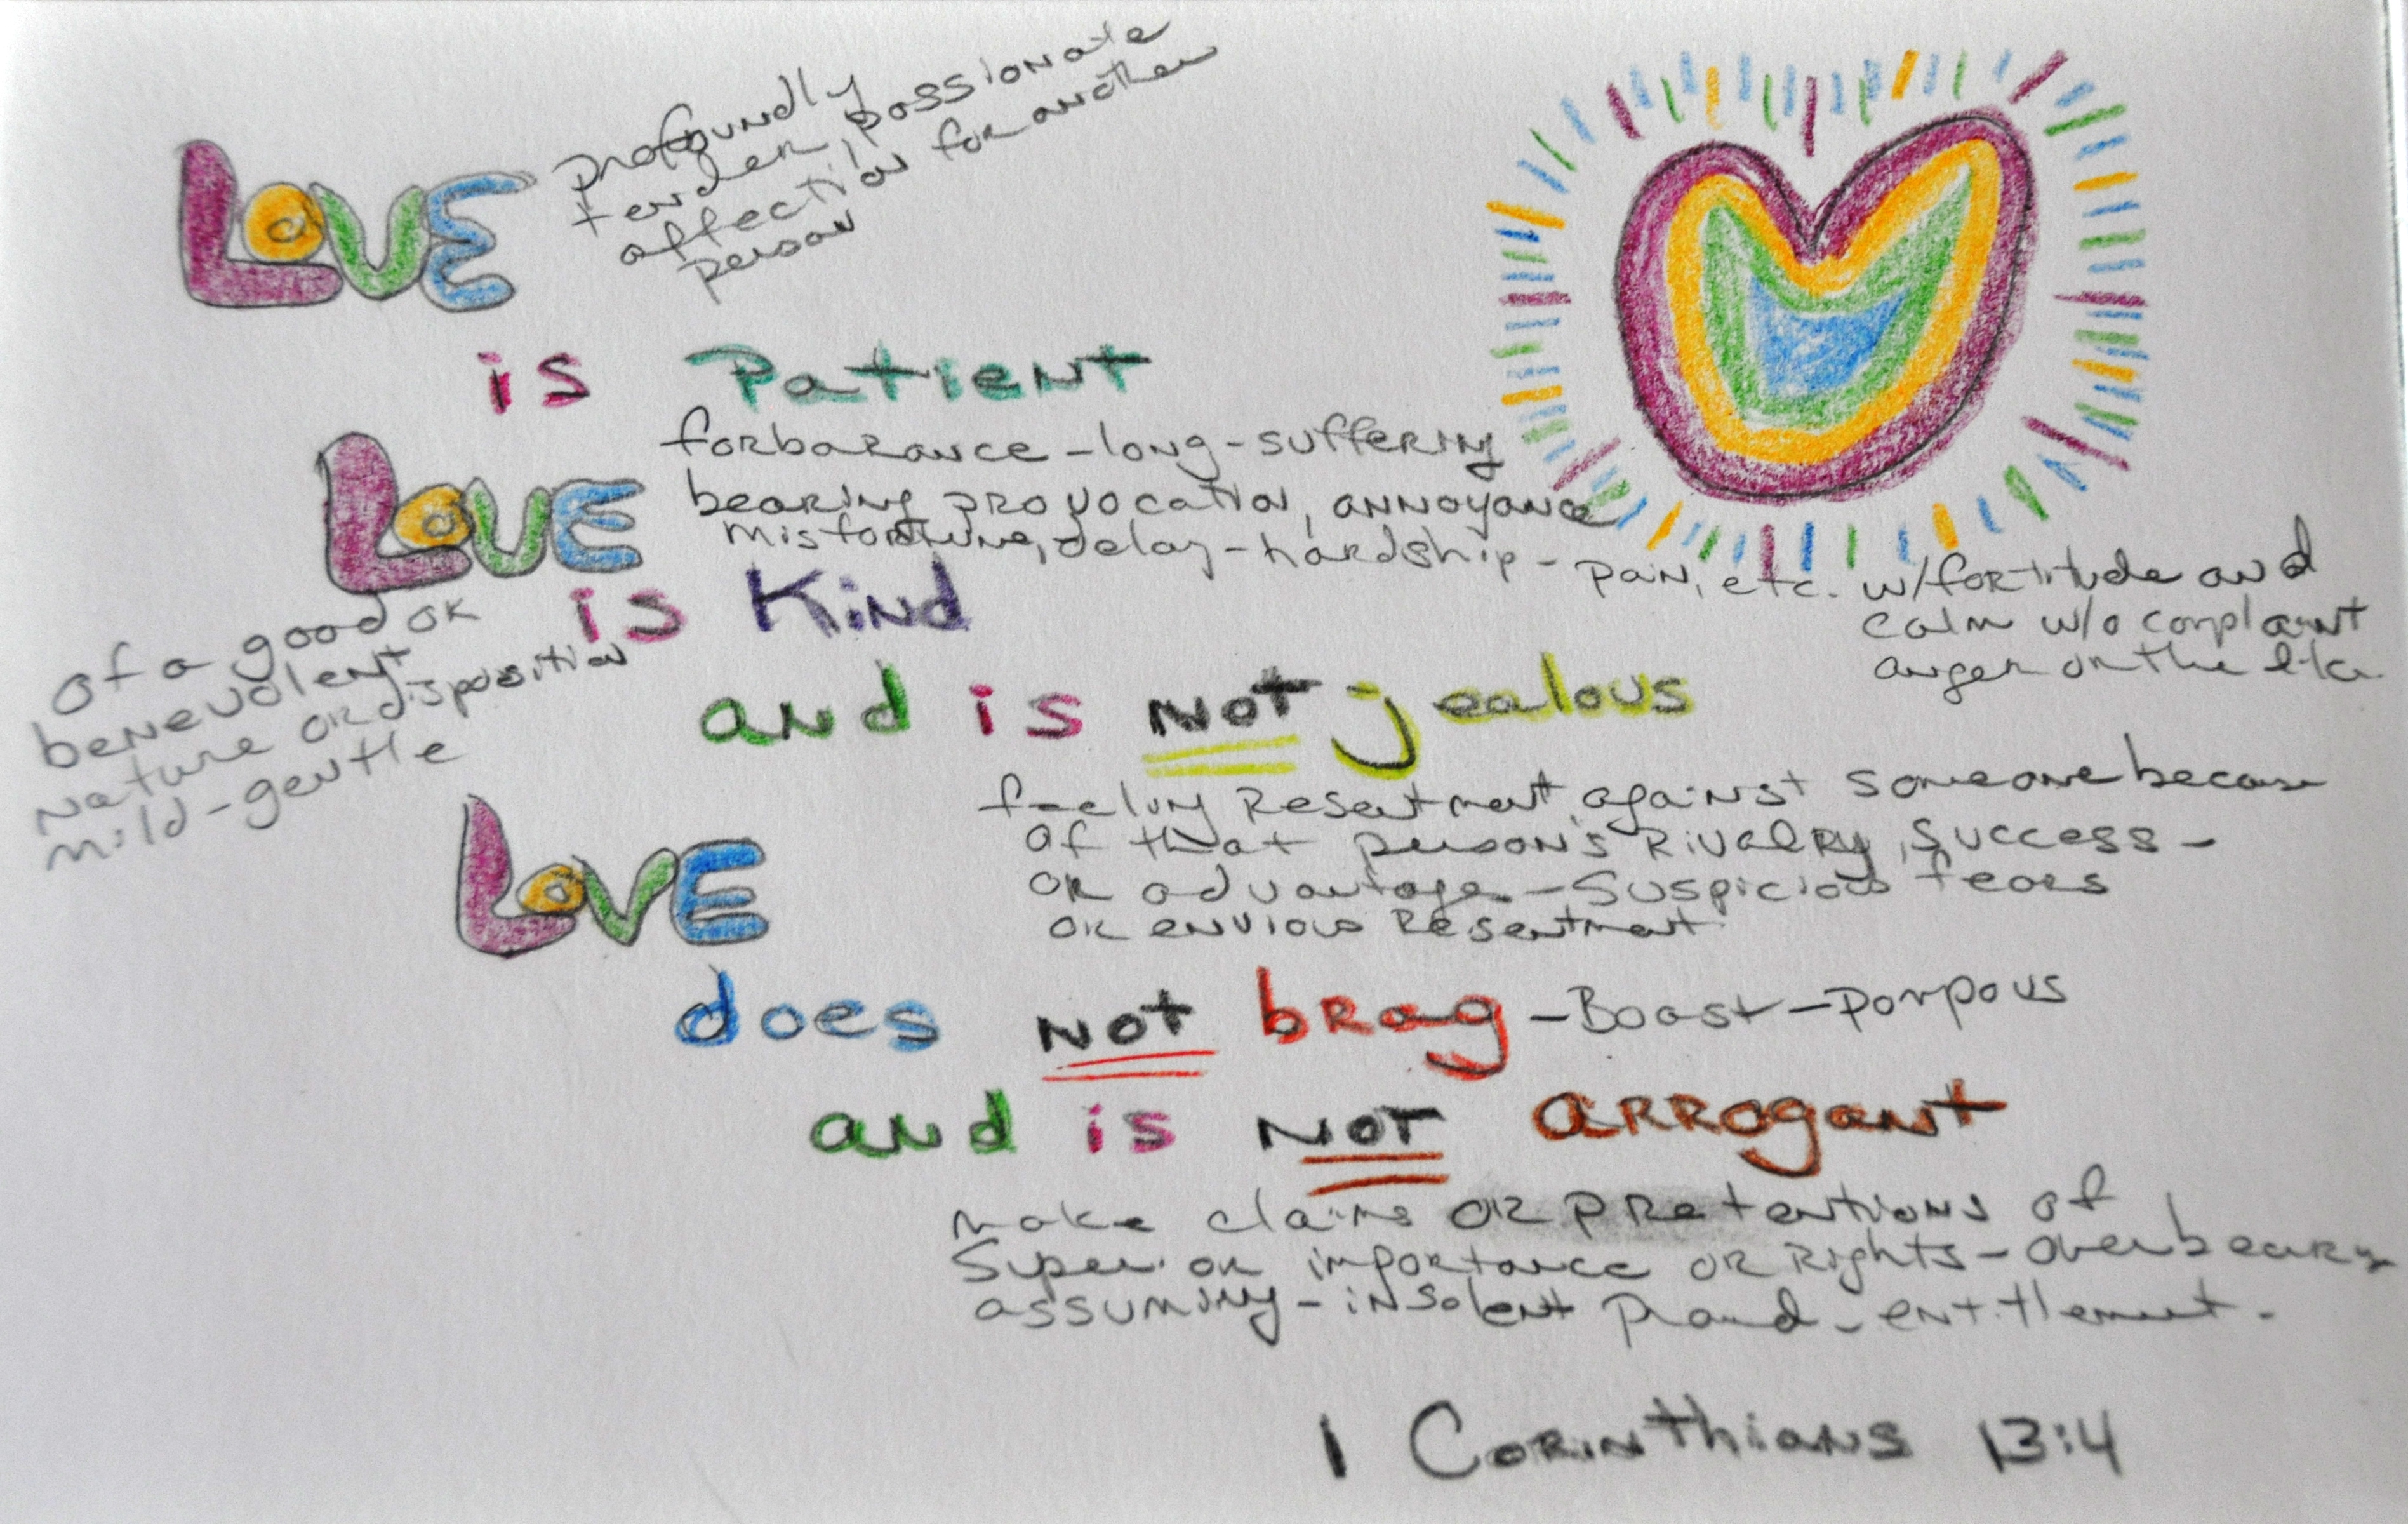 LOVE
profoundly
tender, passionate
affection for another
person
is Patient
forbarance - long - suffering
bearing provocation, annoyance
misfortune, delay - hardship - pain, etc. w/fortitude and
calm w/o complaint
anger or the like
LOVE
is Kind
of a good or
benevolent
nature or disposition
mild - gentle
and is NOT jealous
feeling Resentment against someone because
of that person's Rivalry, success -
or advantage - Suspicious fears
or envious Resentment
LOVE
does NOT brag - Boast - Pompous
and is NOT arrogant
make claims or pretentions of
Superior importance or Rights - overbearing
assuming - insolent proud - entitlement.
1 Corinthians 13:4